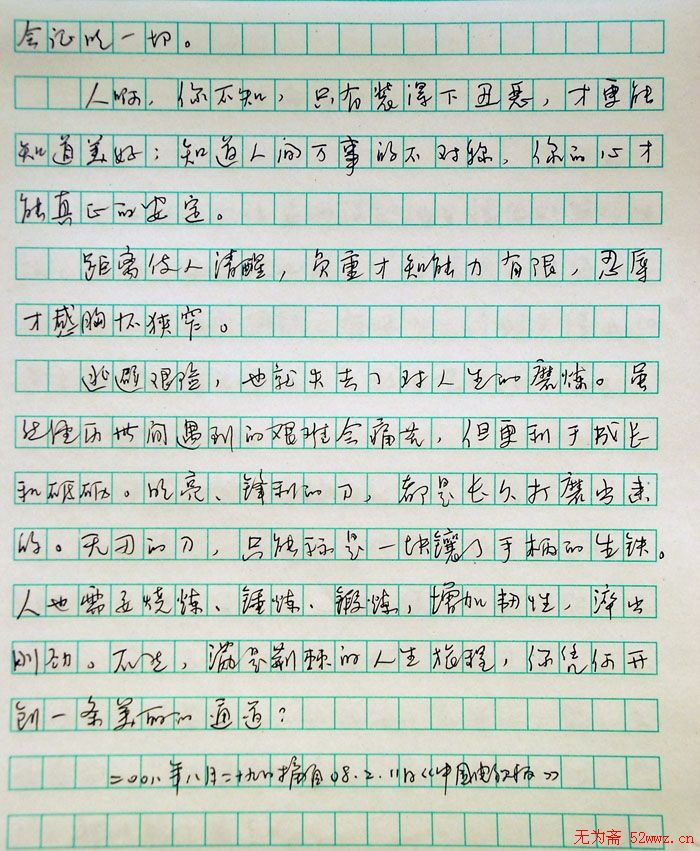 会证明一切。
人啊，你不知，只有装得下丑恶，才更能
知道美好；知道人间万事的不对称，你的心才
能真正的安定。
距离使人清醒，负重才知能力有限，忍辱
才感胸怀狭窄。
逃避艰险，也就失去了对人生的磨炼。虽
然经历世间遇到的艰难会痛苦，但更利于成长
和砥砺。明亮、锋利的刀，都是长久打磨出来
的。无刃的刀，只能称是一块镶了手柄的生铁。
人也需要烧炼、锤炼、锻炼，增加韧性，淬出
刚劲。不然，满是荆棘的人生旅程，你凭何开
创一条美丽的通道？
二〇〇八年八月二十九日摘自08.2.11日《中国电报》
无为斋 52wwz.cn